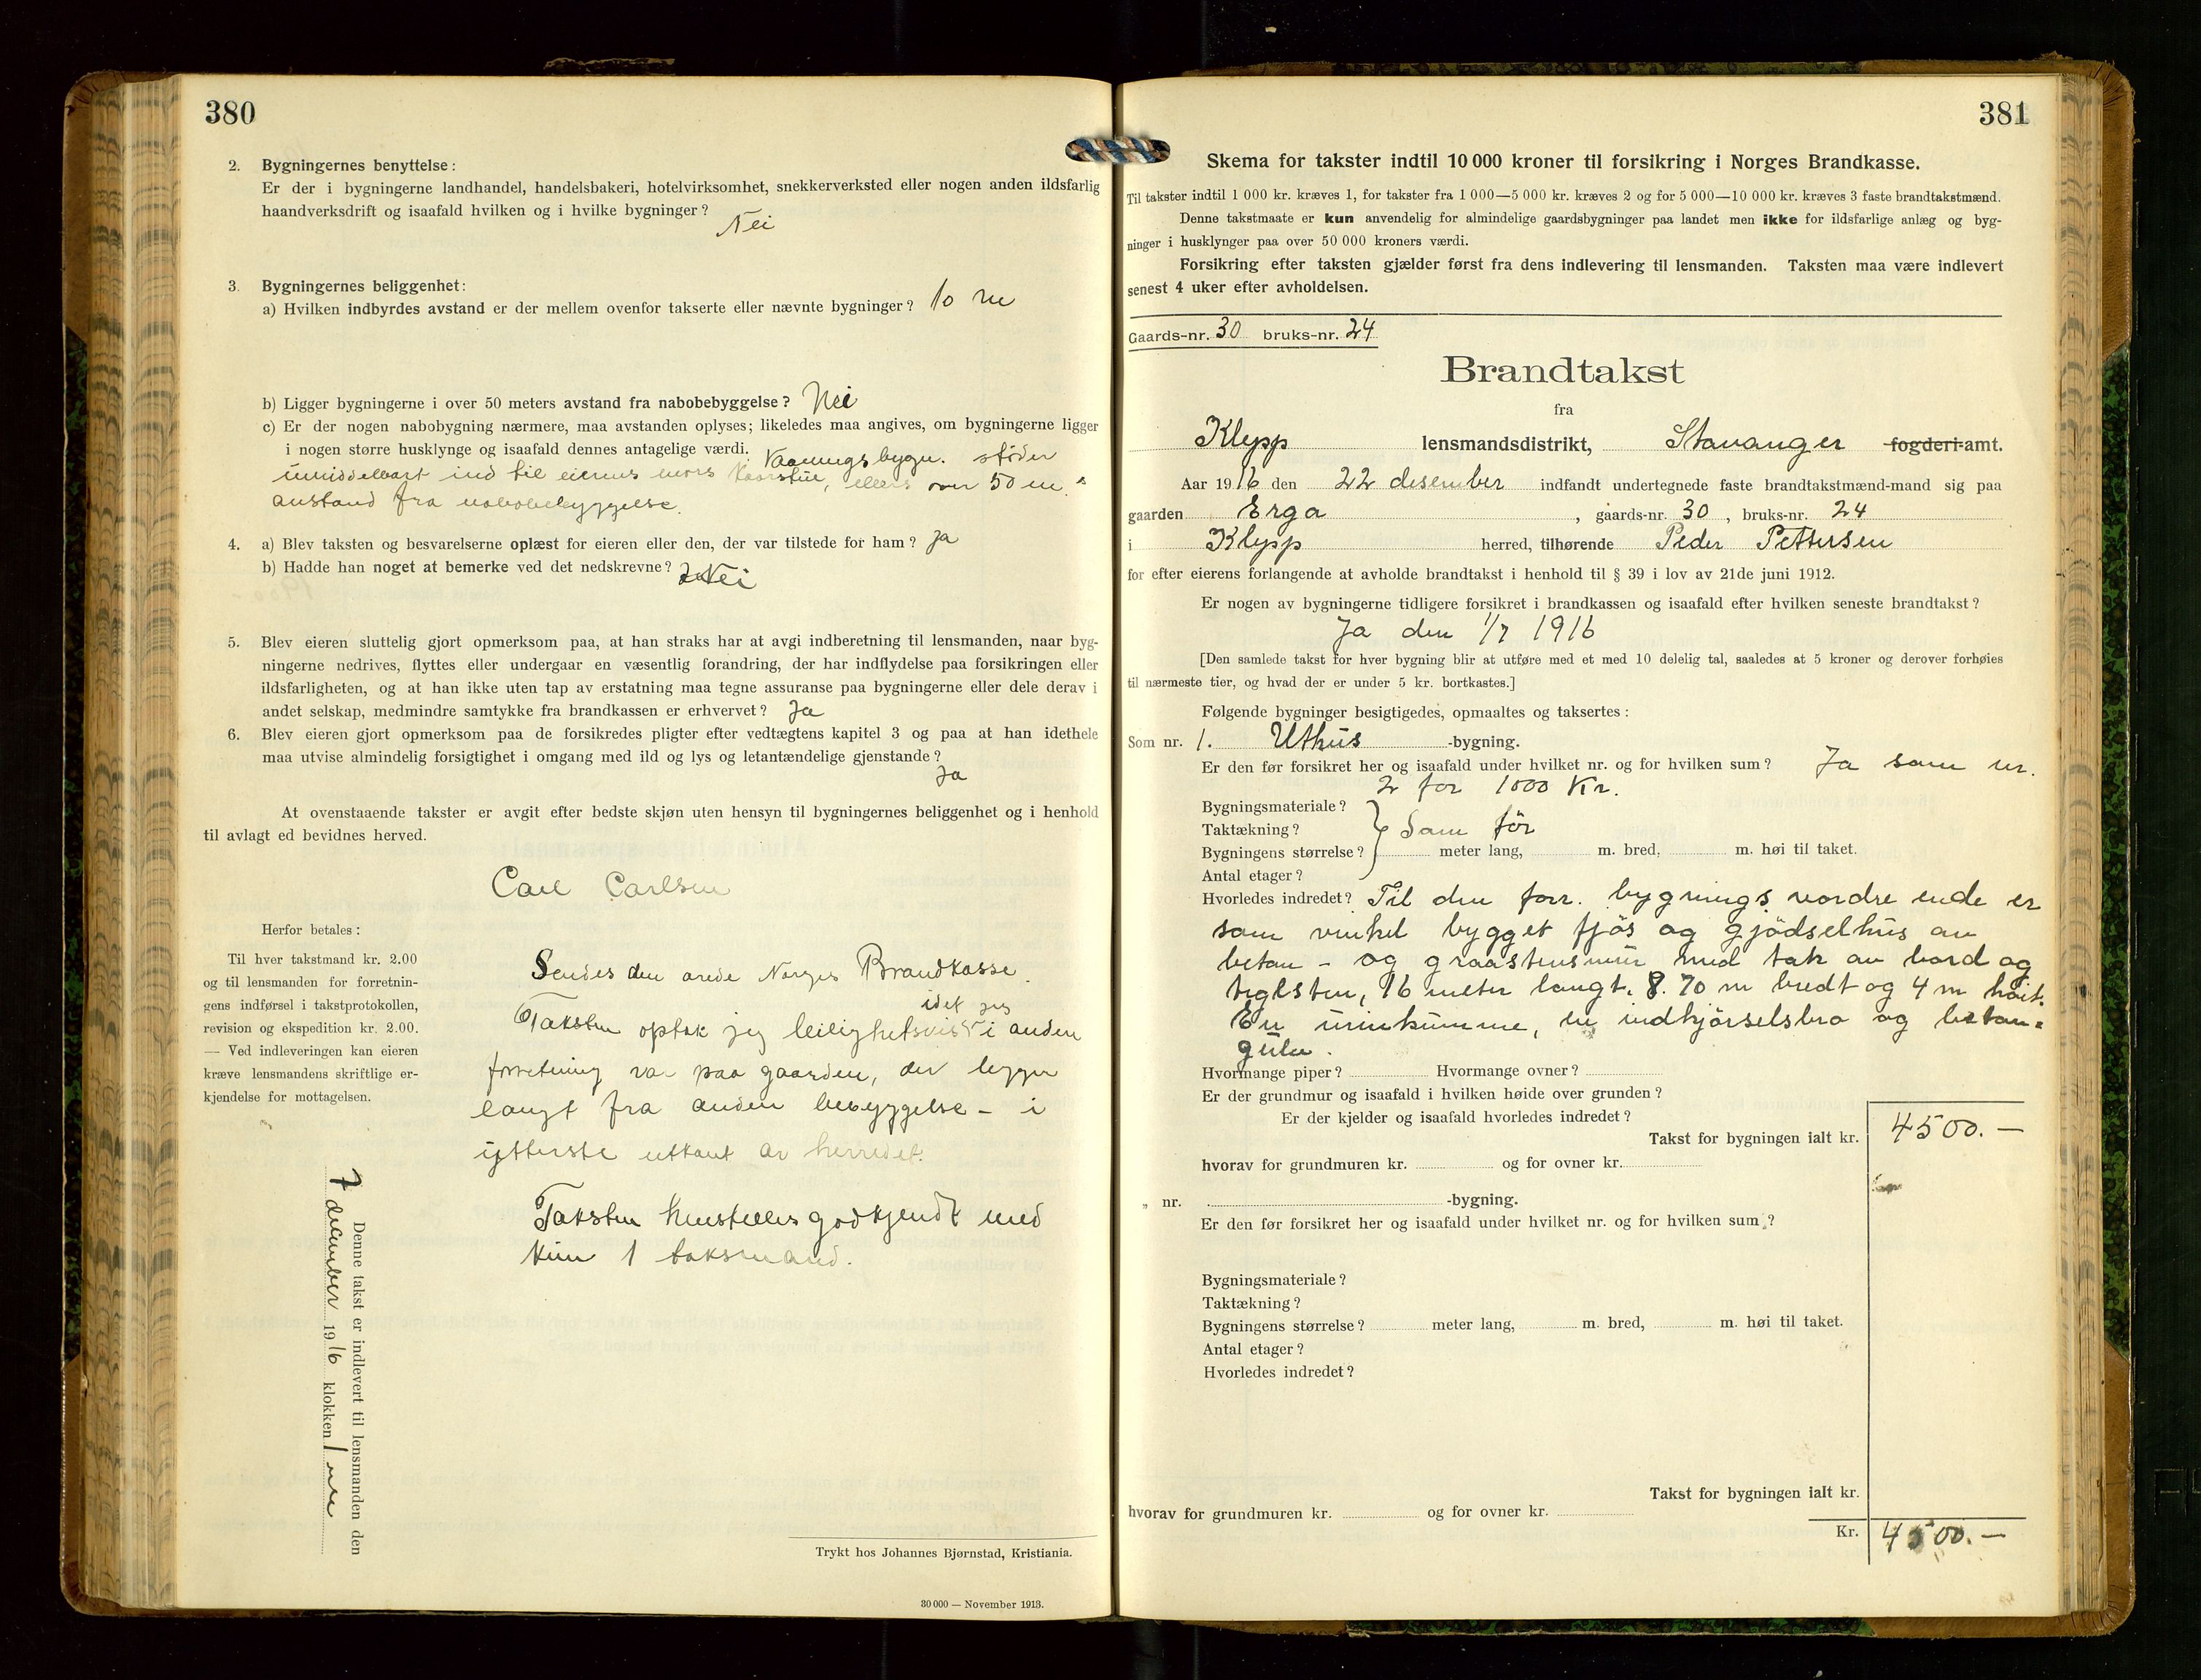 380
2. Bygningernes benyttelse:
Er der i bygningerne landhandel, handelsbakeri, hotelvirksomhet, snekkerverksted eller nogen anden ildsfarlig
haandverksdrift og isaafald hvilken og i hvilke bygninger? Nei
3. Bygningernes beliggenhet:
a) Hvilken indbyrdes avstand er der mellem ovenfor takserte eller nævnte bygninger? 10 m
b) Ligger bygningerne i over 50 meters avstand fra nabobebyggelse? Nei
c) Er der nogen nabobygning nærmere, maa avstanden oplyses; likeledes maa angives, om bygningerne ligger
i nogen større husklynge og isaafald dennes antagelige værdi. Vaaningsbygn. støder
umiddelbart ind til eierens mors kaarstue, ellers over 50 m.s
avstand fra nabobebyggelse.
4. a) Blev taksten og besvarelserne oplæst for eieren eller den, der var tilstede for ham? Ja
b) Hadde han noget at bemerke ved det nedskrevne? Nei
5. Blev eieren sluttelig gjort opmerksom paa, at han straks har at avgi indberetning til lensmanden, naar byg-
ningerne nedrives, flyttes eller undergaar en væsentlig forandring, der har indflydelse paa forsikringen eller
ildsfarligheten, og at han ikke uten tap av erstatning maa tegne assuranse paa bygningerne eller dele derav i
andet selskap, medmindre samtykke fra brandkassen er erhvervet? Ja
6. Blev eieren gjort opmerksom paa de forsikredes pligter efter vedtægtens kapitel 3 og paa at han idethele
maa utvise almindelig forsigtighet i omgang med ild og lys og letantændelige gjenstande?
Ja
At ovenstaaende takster er avgit efter bedste skjøn uten hensyn til bygningernes beliggenhet og i henhold
til avlagt ed bevidnes herved.
Carl Carlsen
Herfor betales:
Til hver takstmand kr. 2.00
og til lensmanden for forretnin-
gens indførsel i takstprotokollen,
revision og ekspedition kr. 2.00.
— Ved indleveringen kan eieren
kræve lensmandens skriftlige er-
kjendelse for mottagelsen.
Sendes den ærede Norges Brandkasse.
idet jeg
Taksten optok jeg leilighetsvis i anden
forretning var paa gaarden, der ligger
langt fra anden bebyggelse - i
ytterste utkant av herredet.
Taksten henstilles godkjendt med
kun 1 taksmand.
Denne takst er indlevert til lensmanden den
7 december 1916 klokken 1 
Trykt hos Johannes Bjørnstad, Kristiania.
30 000 — November 1913.
381
Skema for takster indtil 10 000 kroner til forsikring i Norges Brandkasse.
Til takster indtil 1 000 kr. kræves 1, for takster fra 1 000—5 000 kr. kræves 2 og for 5 000—10 000 kr. kræves 3 faste brandtakstmænd.
Denne takstmaate er kun anvendelig for almindelige gaardsbygninger paa landet men ikke for ildsfarlige anlæg og byg-
ninger i husklynger paa over 50 000 kroners værdi.
Forsikring efter taksten gjælder først fra dens indlevering til lensmanden. Taksten maa være indlevert
senest 4 uker efter avholdelsen.
Gaards-nr. 30 bruks-nr. 24
Brandtakst
fra
Klepp lensmandsdistrikt, Stavanger fogderi-amt.
Aar 1916 den 22 desember indfandt undertegnede faste brandtakstmænd-mand sig paa
gaarden Erga, gaards-nr. 30, bruks-nr. 24
i Klepp herred, tilhørende Peder Pettersen
for efter eierens forlangende at avholde brandtakst i henhold til § 39 i lov av 21de juni 1912.
Er nogen av bygningerne tidligere forsikret i brandkassen og isaafald efter hvilken seneste brandtakst?
Ja den 1/7 1916
[Den samlede takst for hver bygning blir at utføre med et med 10 delelig tal, saaledes at 5 kroner og derover forhøies
til nærmeste tier, og hvad der er under 5 kr. bortkastes.]
Følgende bygninger besigtigedes, opmaaltes og taksertes:
Som nr. 1. Uthus -bygning.
Er den før forsikret her og isaafald under hvilket nr. og for hvilken sum? Ja som nr.
2 for 1000 Kr.
Bygningsmateriale?
Taktækning? } Som før
Bygningens størrelse? meter lang, m. bred, m. høi til taket.
Antal etager?
Hvorledes indredet? Til den forr. bygnings nordre ende er
som vinkel bygget fjøs og gjødselhus av
betan - og graastensmur med tak av bord og
teglsten, 16 meter langt, 8.70 m bredt og 4 m høit.
En urinkumme, en indkjørselsbro og betan=
gulv.
Hvormange piper? Hvormange ovner?
Er der grundmur og isaafald i hvilken høide over grunden?
Er der kjelder og isaafald hvorledes indredet?
Takst for bygningen ialt kr. 4500.—
hvorav for grundmuren kr. og for ovner kr.
„ nr. -bygning.
Er den før forsikret her og isaafald under hvilket nr. og for hvilken sum?
Bygningsmateriale?
Taktækning?
Bygningens størrelse? meter lang, m. bred, m. høi til taket.
Antal etager?
Hvorledes indredet?
Takst for bygningen ialt kr.
hvorav for grundmuren kr. og for ovner kr.
Kr. 4500.—